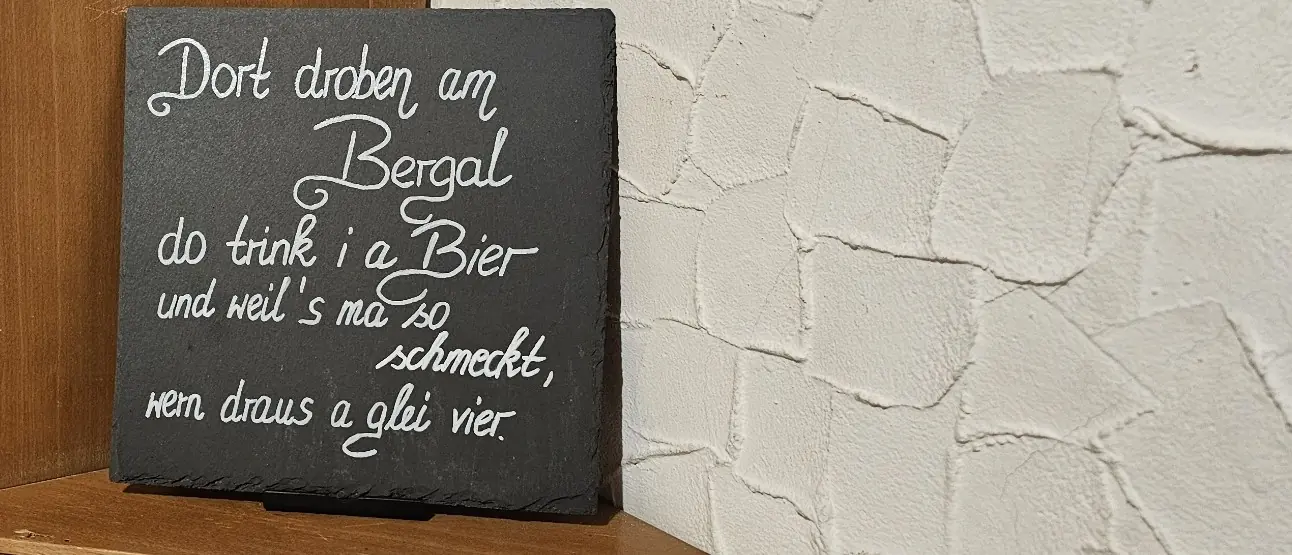 Dort droben am
Bergal
do trink i a Bier
und weil's ma so
schmeckt,
wern draus a glei vier.